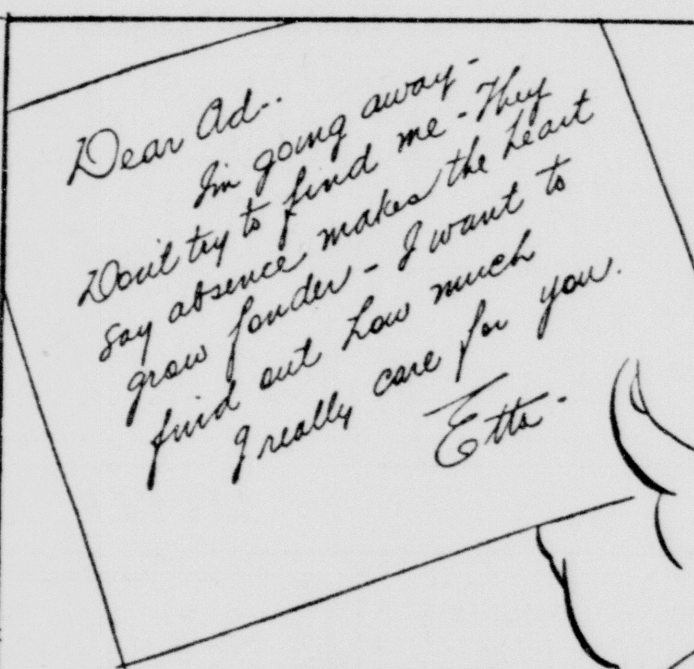 Dear Ad--
I'm going away-
Don't try to find me - They
say absence makes the heart
grow fonder - I want to
find out how much
I really care for you.
Etta-